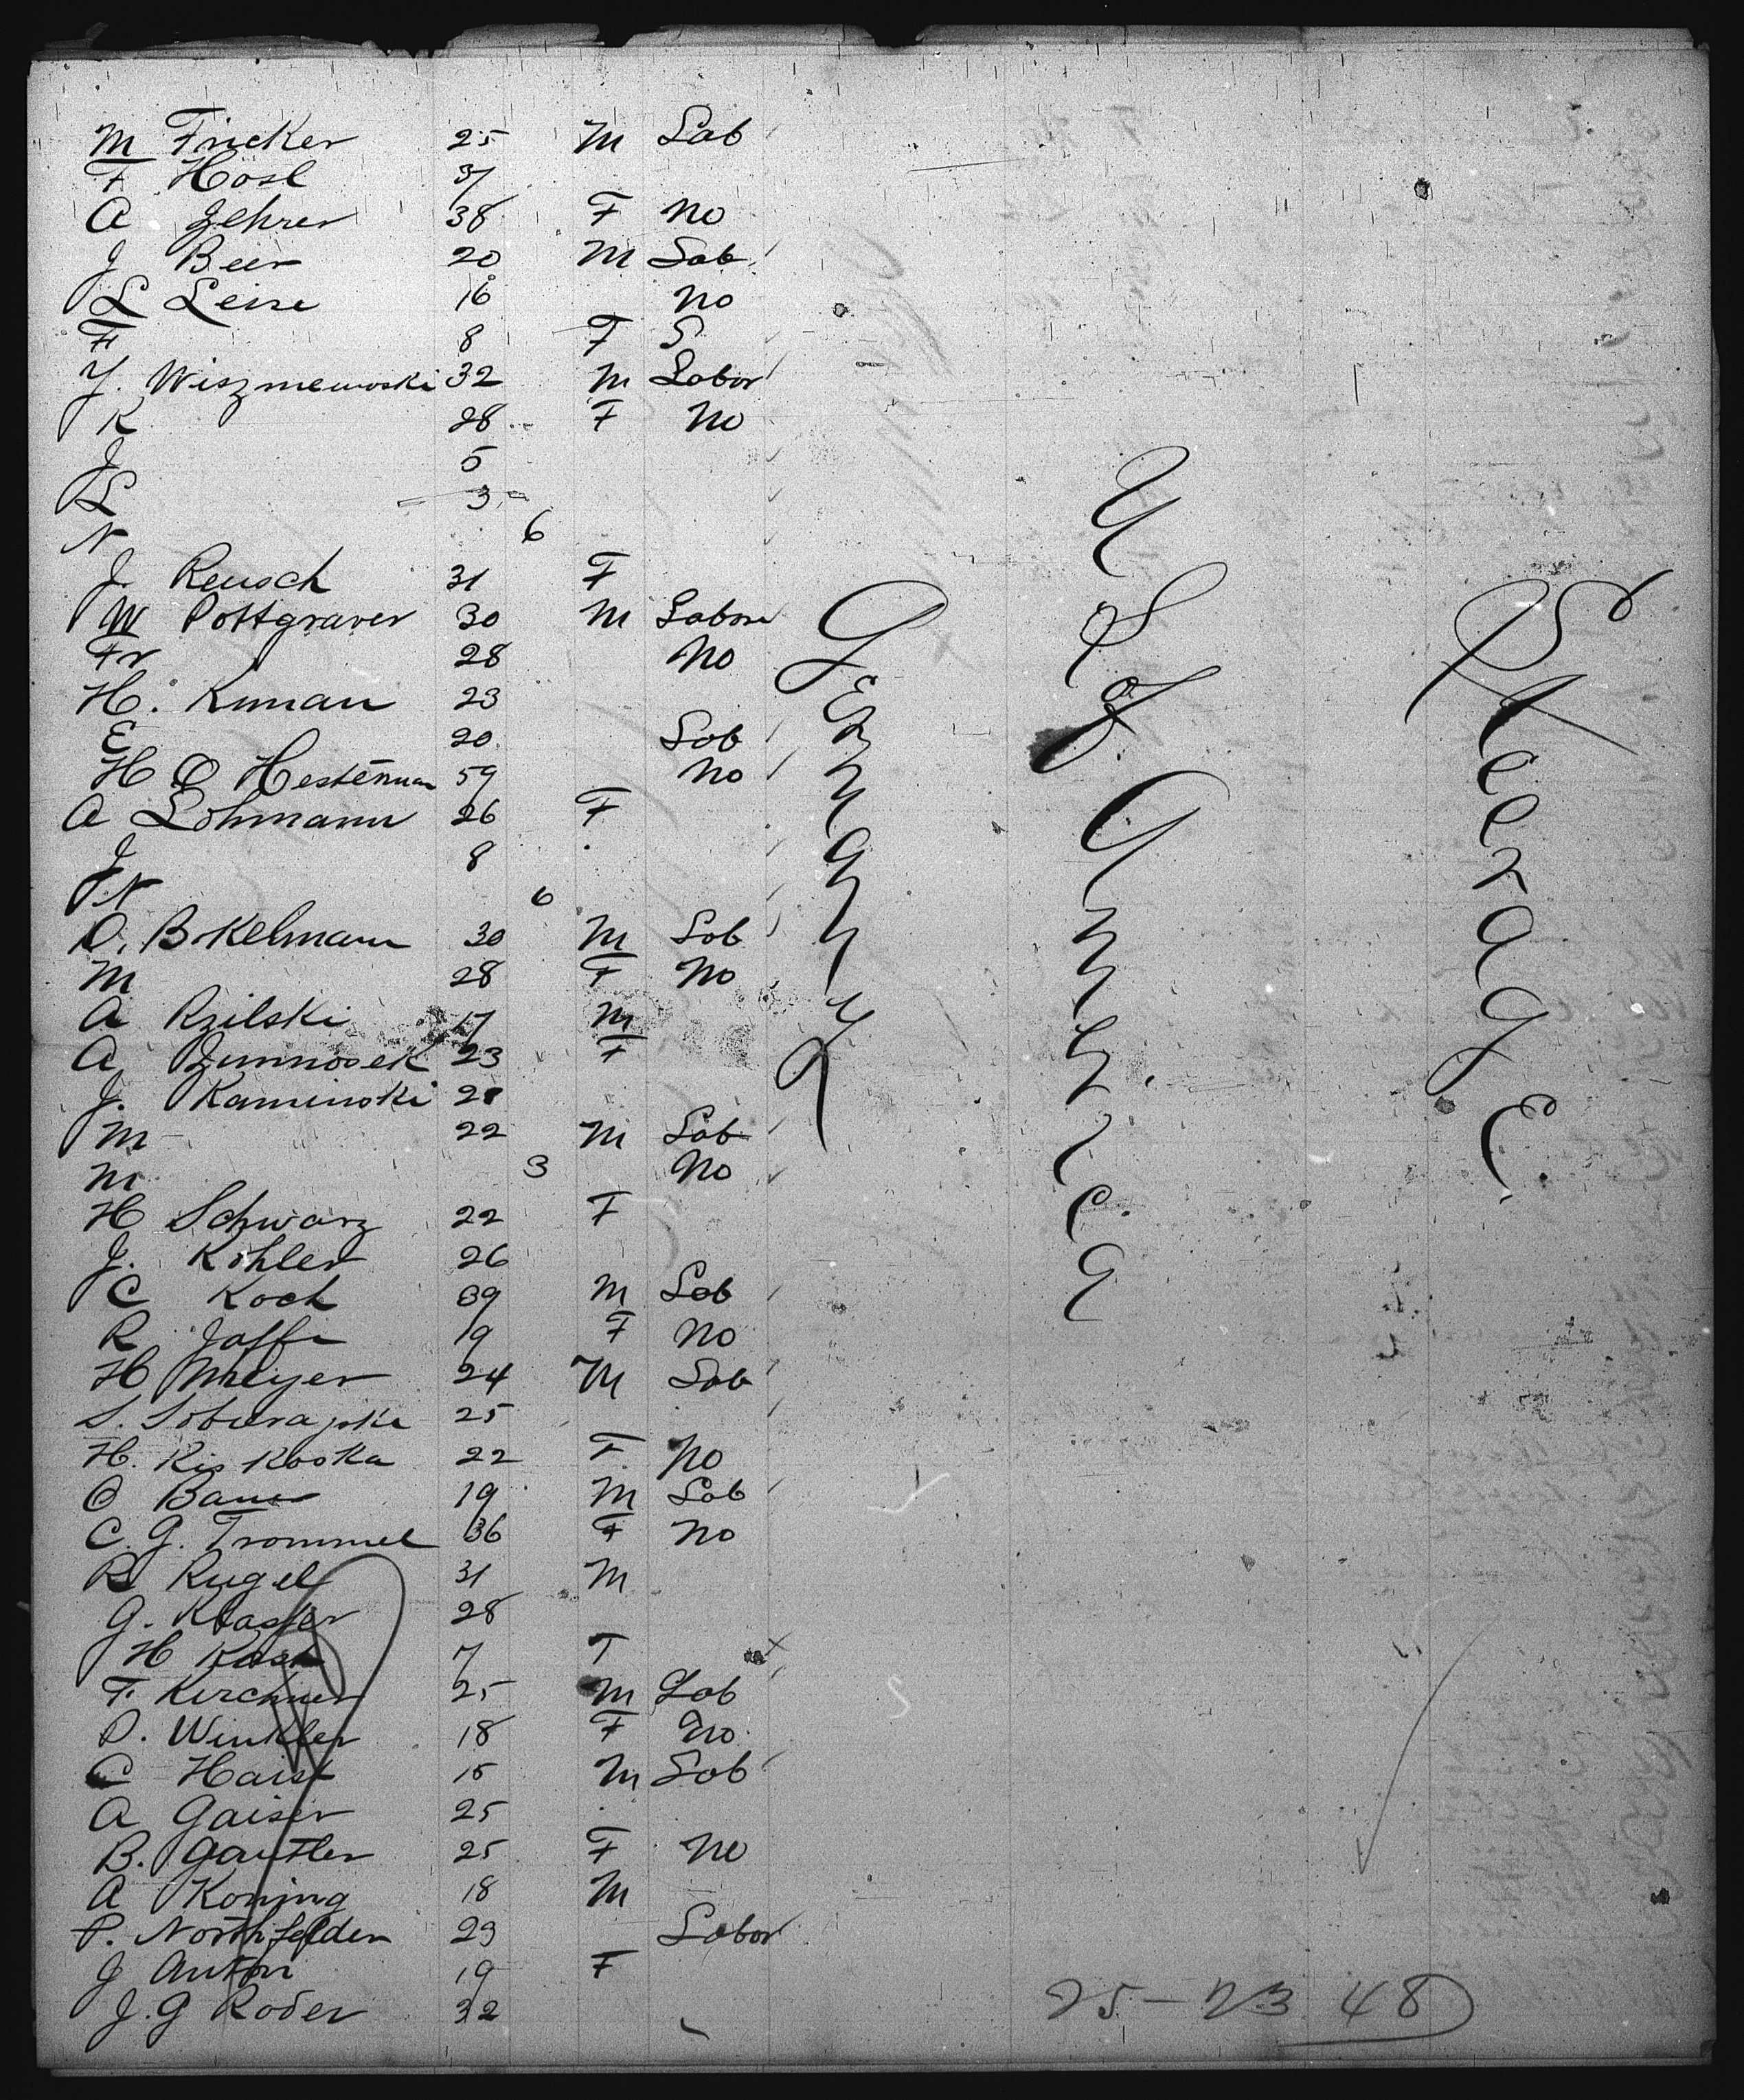 M Fricker 25 M Lab
F Hösl 37
A Zehrer 38 F No
J Beer 20 M Lab
L Leise 16 No
F 8 F S
J. Wiszmewoski 32 M Labor
K 28 F No
J 5
L 3
N 6
J Reusch 31 F
W Pottgraver 30 M Labor
Fr 28 No
H. Kunau 23
E 20 Lab
H O 59 No
A Lohmann 26 F
J 8
N 6
D. Bokelmann 30 M Lab
M 28 F No
A Rzilski 17 M
A 23 F
J. Kaminski 28
M 22 M Lab
M 3 No
H Schwarz 22 F
J. Kohler 26
C Koch 39 M Lab
R Jaffe 19 F No
H Meyer 24 M Lab
S. 25
H. 22 F No
O Bauer 19 M Lab
C. G. Trommel 36 F No
R Kugel 31 M
G. 28
H 7 F
F. Kirchner 25 M Lab
P. Winkler 18 F No
C Haist 15 M Lab
A Gaiser 25
B. 25 F No
A Koning 18 M
P. 29 Labor
J Anton 19 F
J. G Roder 32
Germany
U S of America
Steerage
25 - 23 48